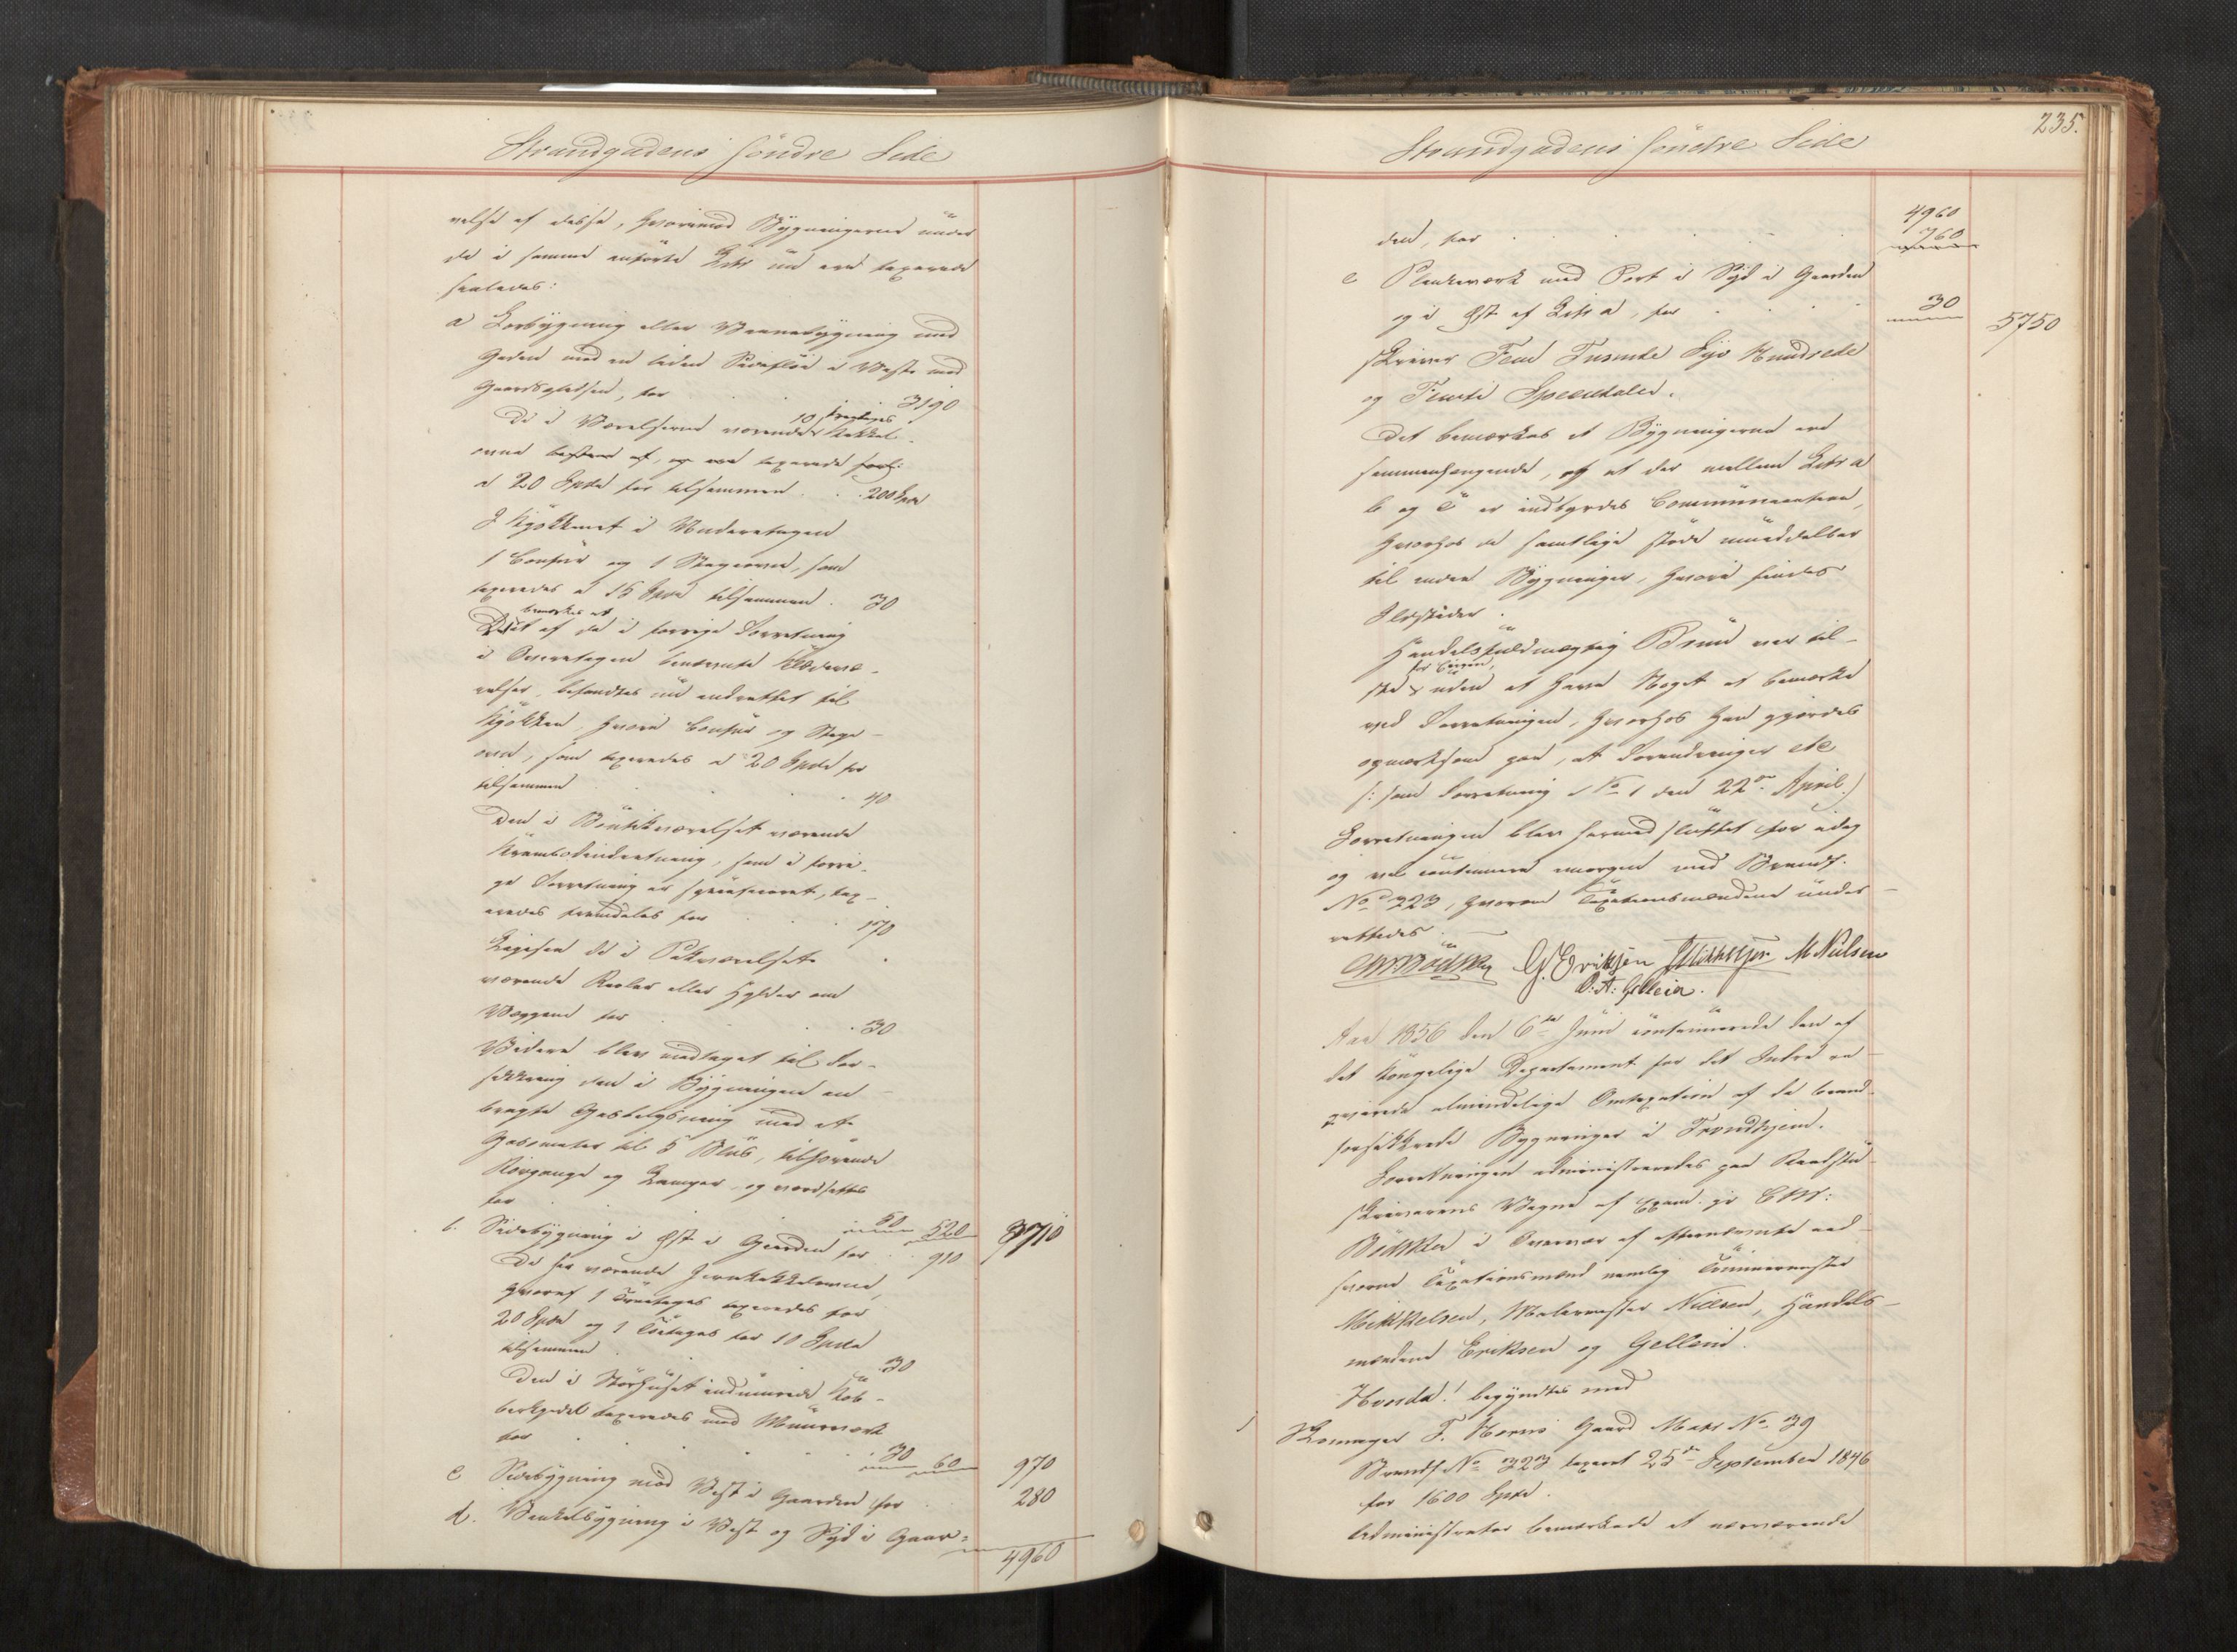 Strandgadens søndre Side
velse af disse, hvorimod Bygningerne under
de i samme anførte Litr nu ere taxerede
saaledes:
a Forbygning eller Vaanebygning mod
Gaden med en liden Sidefløi i Vest mod
Gaardspladsen, for 3190
De i Værelserne værende 10 treetages Kakkel-
ovne bestaae af, og ere taxerede
a 20 Spd for tilsammen 200 Spd
I Kjøkkenet i Underetagen
1 Comfur og 1 Stegeovn, som
taxeredes a 15 Spd tilsammen. 30
Det bemærkes at af de i forrige Forretning
i Overetagen benævnte Klædevæ-
relser, befandtes nu indrettet til
Kjøkken, hvori Comfur og Stege-
ovn, som taxeredes a 20 Spd for
tilsammen 40
Den i Boutikværelset værende
Krambodindretning, som i forri-
ge Forretning er specificeret, tax-
eredes fremdeles for 170
Ligesom de i Pakværelset
værende Reoler eller Hylder om
Væggene for 30
Videre blev medtaget til For-
sikkring den i Bygningen an-
bragte Gasbelysning med et
Gasometer til 5 Blus, tilhørende
Rørgange og Lamper, og værdsattes
for 50 520 3710
b. Sidebygning i Øst i Gaarden for 910
De her værende Jernkakkelovne,
hvoraf 1 Treetages taxeredes for
20 Spd og 1 Toetages for 10 Spd
tilsammen 30
Den i Storhuset indmurede Kob-
berkjedel taxeredes med Muurværk
for 30 60 970
c Sidebygning mod Vest i Gaarden for 280
d. Vinkelbygning i Vest og Syd i Gaar-
4960
235.
Strandgadens søndre Side
4960
den, for 760
e Plankeværk med Port i Syd i Gaarden
og i Øst af Litr a, for 30 5750
skriver Fem Tusinde Syv Hundrede
og Femti Speciedaler.
Det bemærkes at Bygningerne ere
sammenhængende, og at der mellem Litr a
b og c er indbyrdes Communication,
hvorhos de samtlige støde umiddelbar
til anden Bygninger, hvori findes
Ildsteder.
Handelsfuldmægtig Bruun var til-
stede for Eieren, uden at have Noget at bemærke
ved Forretningen, hvorhos han gjordes
opmærksom paa, at Forandringer etc
(: som Forretning No 1 den 22de April.)
Forretningen blev hermed sluttet for idag
og vil continuere imorgen med Brandf.
No 323, hvorom Taxationsmændene under-
rettedes.
CM Bödtker G. Eriksen Mikkelsen M Nielsen
O: A: Gellein.
Aar 1856 den 6te Juni continuerede den af
det kongelige Departement for det Indre an-
ordnede almindelige Omtaxation af de brand-
forsikkrede Bygninger i Trondhjem.
Forretningen administreredes paa Raadstu-
skriverens Vegne af Exam. jur CM:
Bödtker i Overvær af efternævnte ed-
svorne Taxationsmænd nemlig Tømmermester
Mikkelsen, Malermester Nielsen, Handels-
mændene Eriksen og Gellein.
Hvorda! begyndtes med
1 Skomager F. Horns Gaard Matr No 39
Brandf No 323 taxeret 25de September 1846
for 1600 Spd.
Administrator bemærkede at nærværende